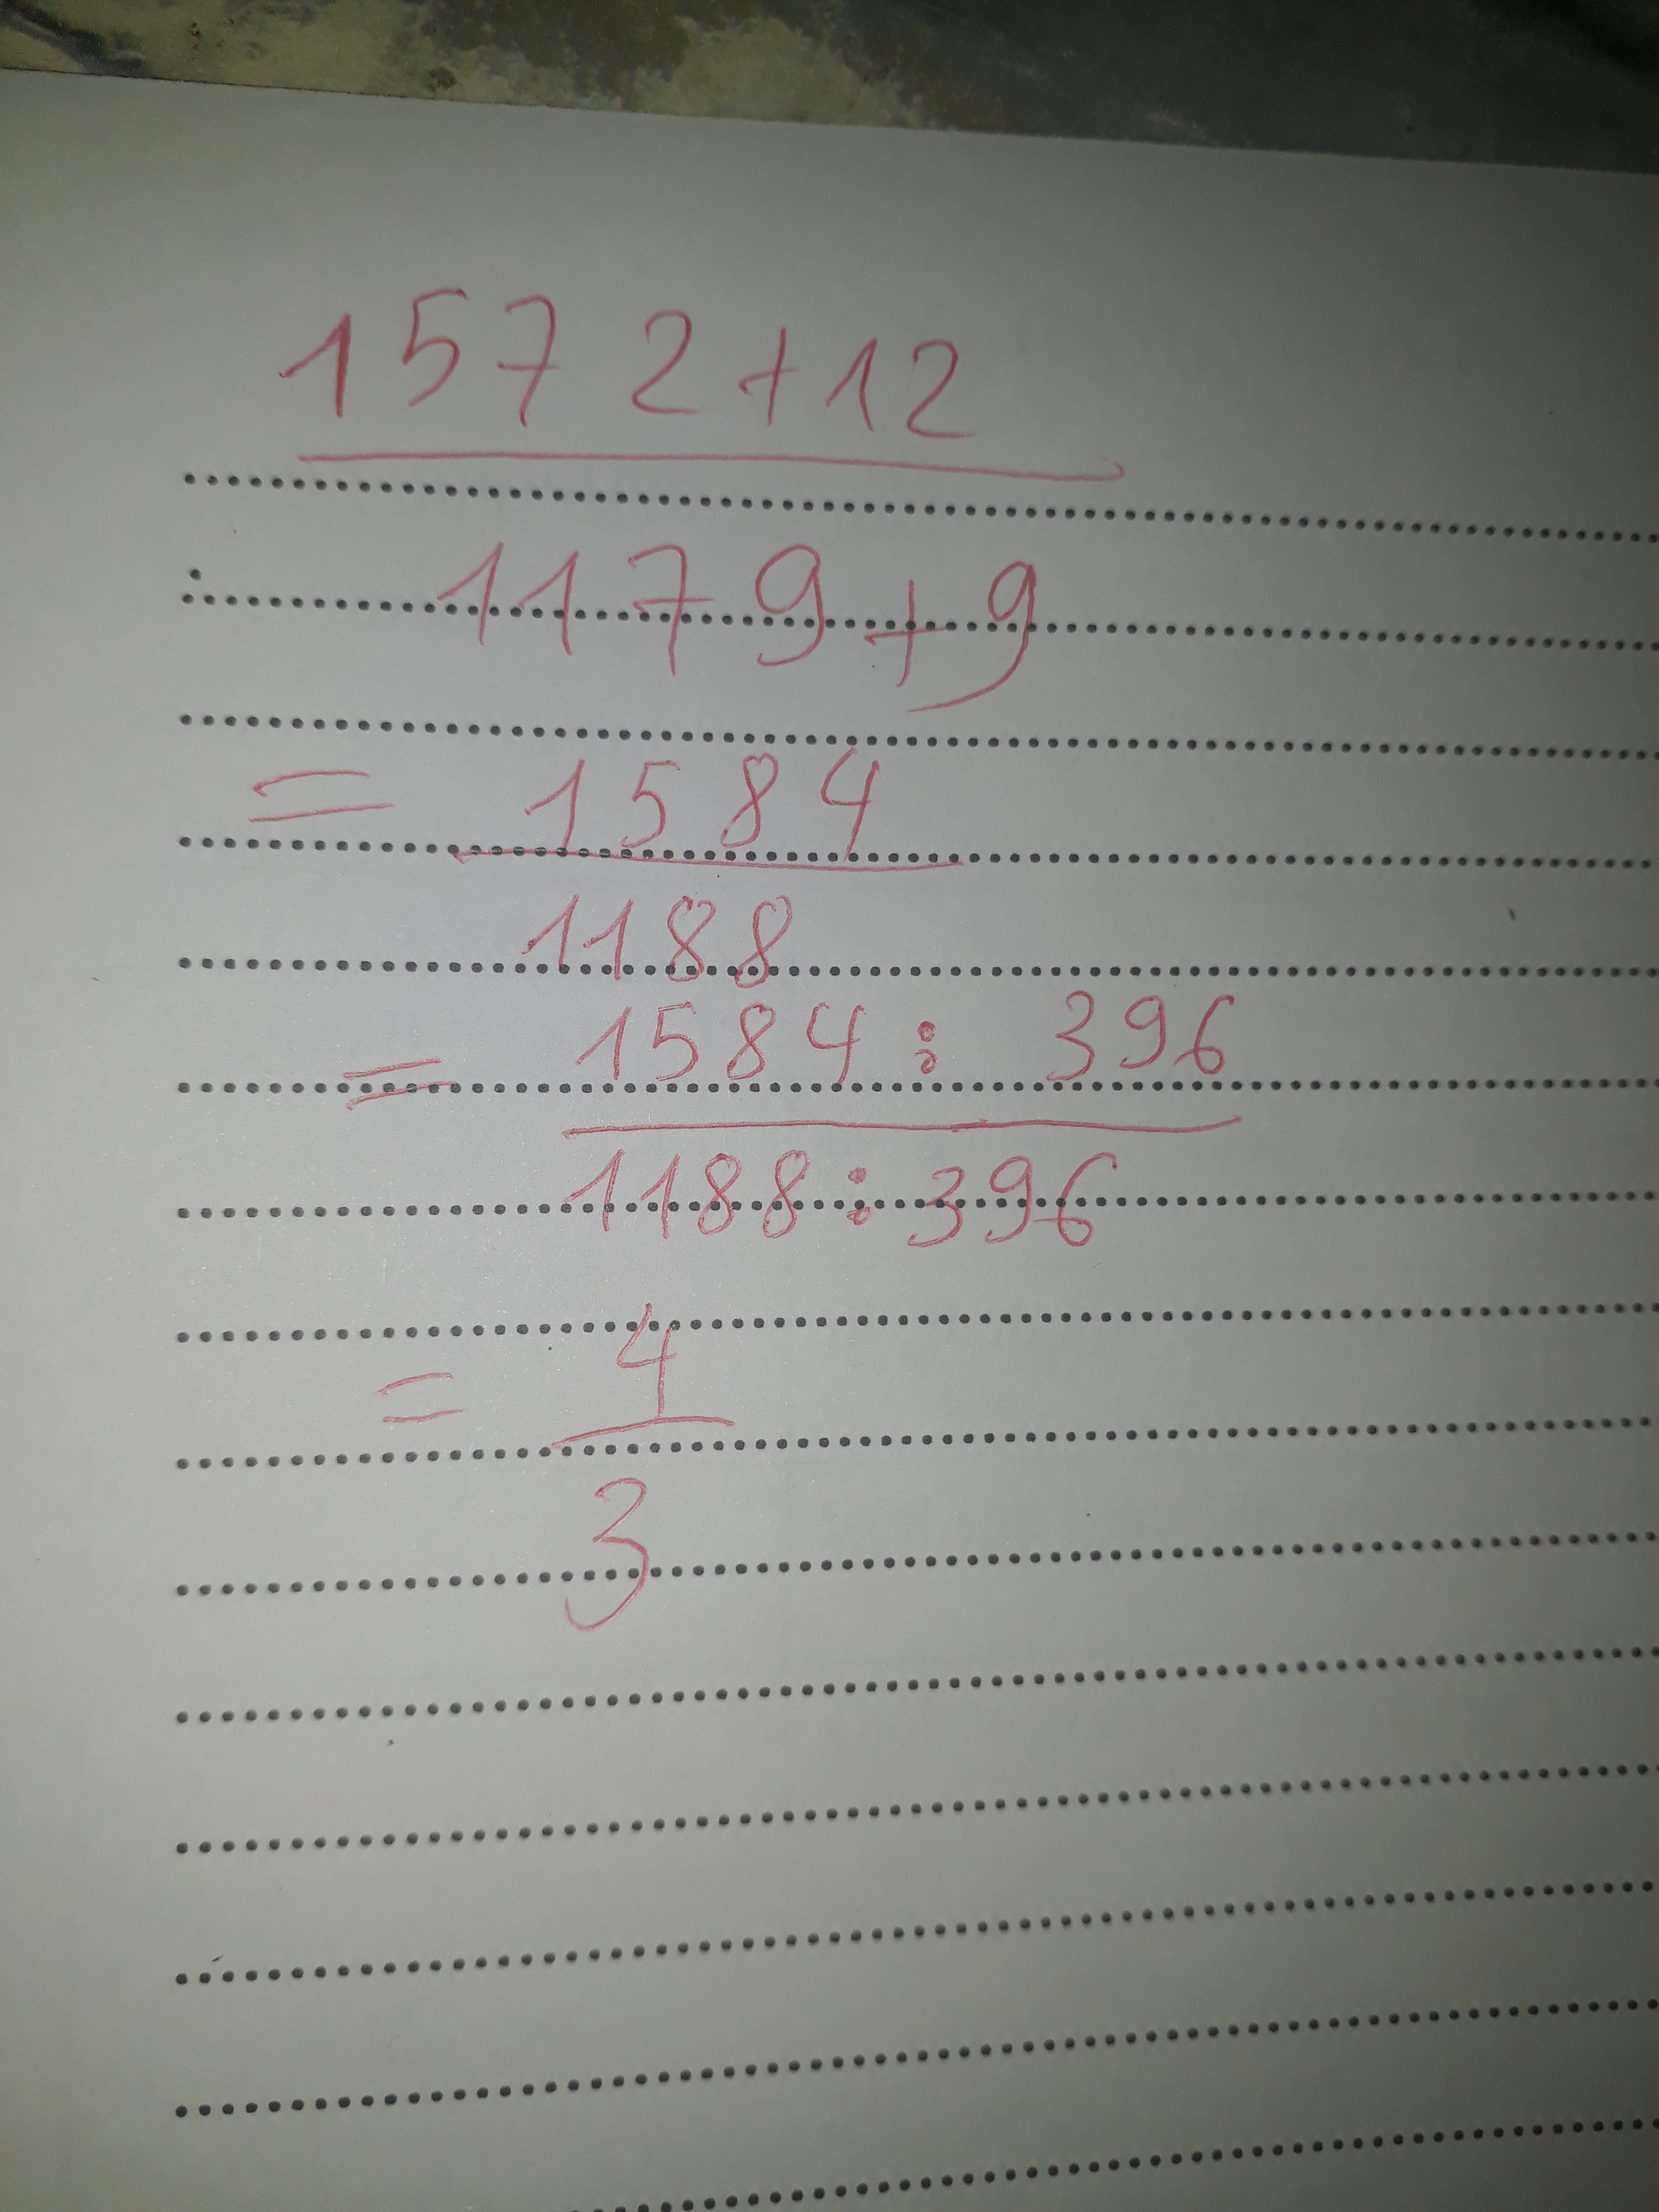 1572+12
1179+9
= 1584
1188
= 1584 : 396
1188 : 396
= 4
3